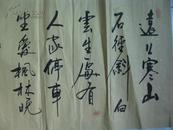 遠上寒山
石徑斜白
雲生處有
人家停車
坐愛楓林晚